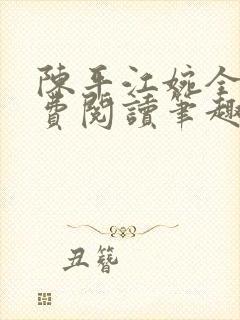 陳平江婉全
費閱讀筆趣
丑簪